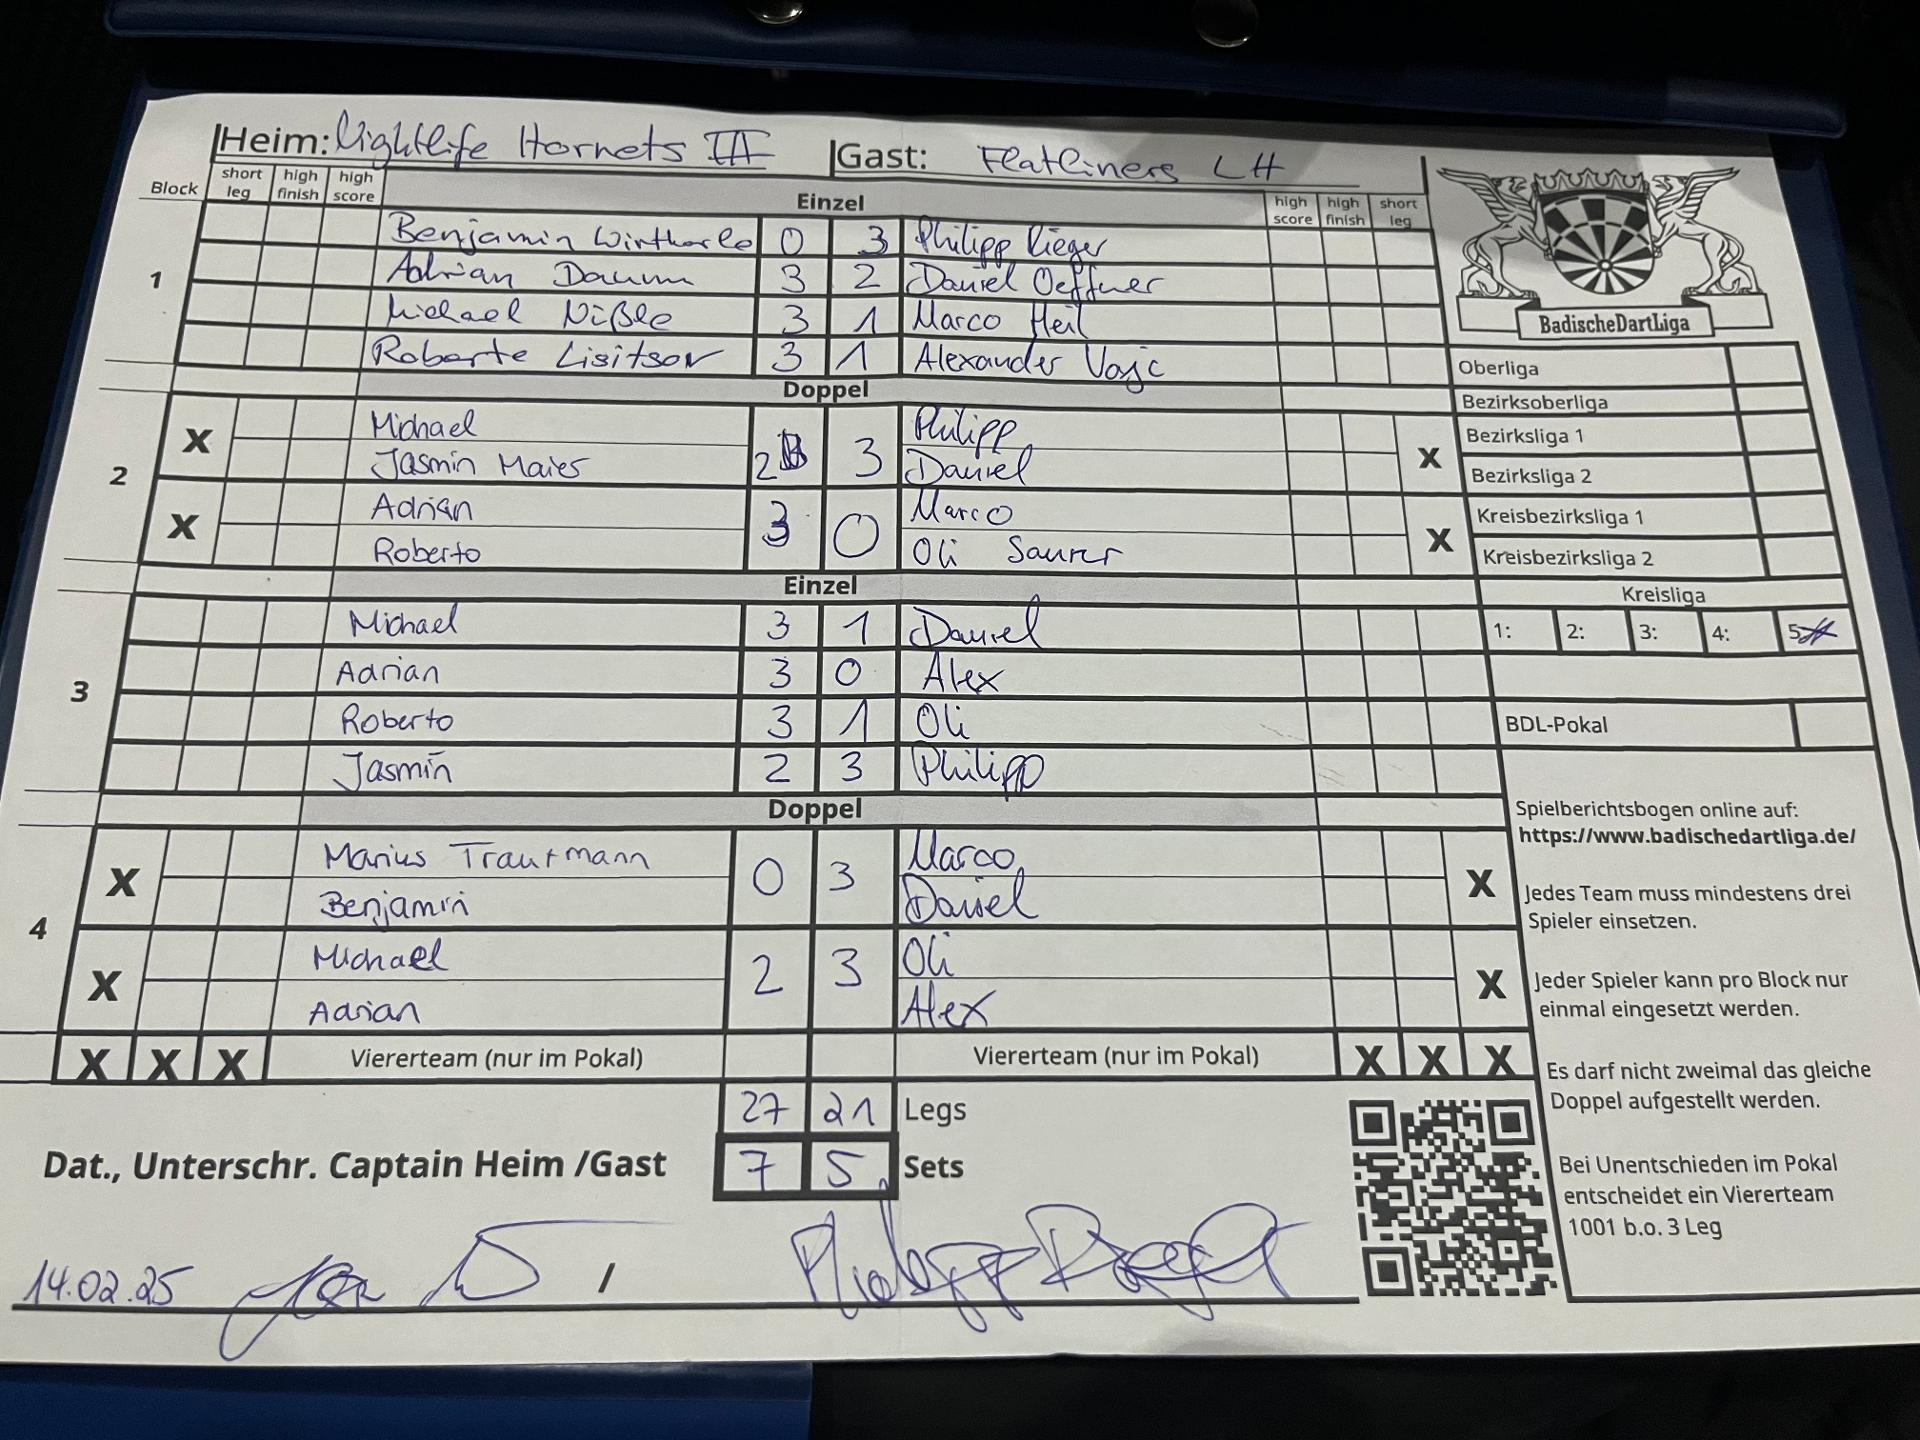 Heim: Nightlife Hornets III Gast: Flatliners LH
Block short leg high finish high score Einzel high score high finish short leg
1
Benjamin 0 3 Philipp Rieger
Adrian Daum 3 2 Daniel Oeffner
Michael Nißle 3 1 Marco Heil
Roberto Lisitsov 3 1 Alexander Vajc
BadischeDartLiga
Oberliga
Doppel
Bezirksoberliga
2
X Michael 2 3 Philipp X
Jasmin Maier Daniel
Bezirksliga 1
Bezirksliga 2
X Adrian 3 0 Marco X
Roberto Oli Saurer
Kreisbezirksliga 1
Kreisbezirksliga 2
Einzel
Kreisliga
1: 2: 3: 4: 5
3
Michael 3 1 Daniel
Adrian 3 0 Alex
Roberto 3 1 Oli
BDL-Pokal
Jasmin 2 3 Philipp
Doppel
4
X Marius Trautmann 0 3 Marco X
Benjamin Daniel
X Michael 2 3 Oli X
Adrian Alex
X X X Viererteam (nur im Pokal) Viererteam (nur im Pokal) X X X
27 21 Legs
Dat., Unterschr. Captain Heim /Gast 7 5 Sets
14.02.25 / Philipp Rieger
Spielberichtsbogen online auf:
https://www.badischedartliga.de/
Jedes Team muss mindestens drei
Spieler einsetzen.
Jeder Spieler kann pro Block nur
einmal eingesetzt werden.
Es darf nicht zweimal das gleiche
Doppel aufgestellt werden.
Bei Unentschieden im Pokal
entscheidet ein Viererteam
1001 b.o. 3 Leg